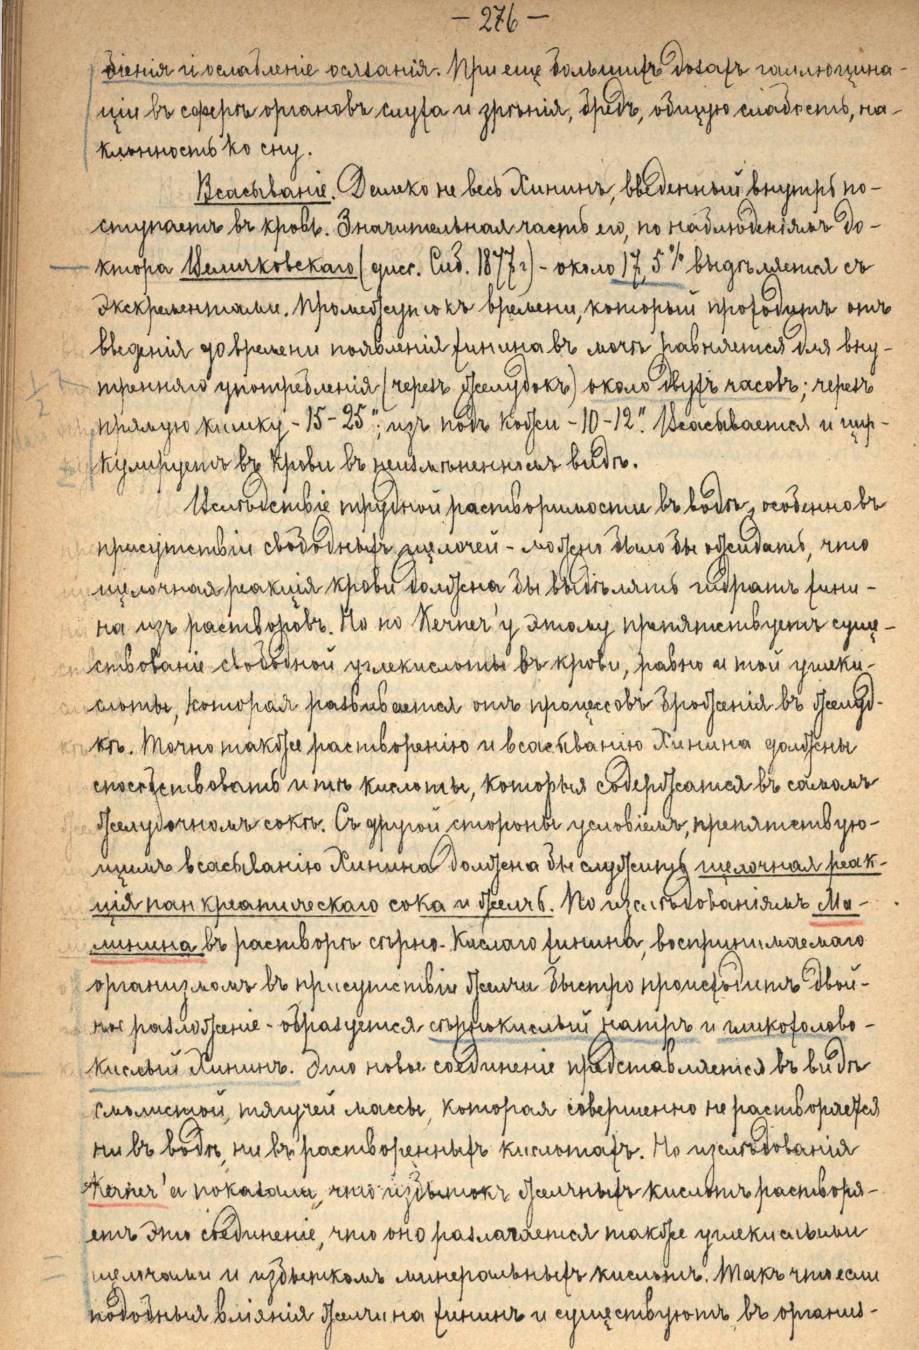 — 276 —
діенія и ослабленіе осязанія. При еще большихъ дозахъ галлюцина-
ціи въ сферѣ органовъ слуха и зрѣнія, бредъ, общую слабость, на-
клонность ко сну.
Всасываніе. Далеко не весь Хининъ, введенный внутрь по-
ступаетъ въ кровь. Значительная часть его, по наблюденіямъ до-
ктора Целичковскаго (дисс. Спб. 1877 г) - около 17,5% выдѣляется съ
экскрементами. Промежутокъ времени, который проходитъ отъ
введенія до времени появленія хинина въ мочѣ равняется для вну-
тренняго употребленія (черезъ желудокъ) около двухъ часовъ; черезъ
прямую кишку - 15 - 25"; изъ подъ кожи - 10 - 12". Всасывается и цир-
кулируетъ въ крови въ неизмѣненномъ видѣ.
Вслѣдствіе трудной растворимости въ водѣ, особенно въ
присутствіи свободныхъ щелочей - можно было бы ожидать, что
щелочная реакція крови должна бы выдѣлять гидратъ хини-
на изъ растворовъ. Но по Kerner'у этому препятствуетъ суще-
ствованіе свободной углекислоты въ крови, равно и той углеки-
слоты, которая развивается отъ процессовъ броженія въ желуд-
кѣ. Точно также растворенію и всасыванію Хинина должны
способствовать и тѣ кислоты, которыя содержатся въ самомъ
желудочномъ сокѣ. Съ другой стороны условіемъ, препятствую-
щимъ всасыванію Хинина должна бы служить щелочная реак-
ція панкреатическаго сока и желчь. По изслѣдованіямъ Ма-
линина въ растворѣ сѣрно-кислаго хинина, воспринимаемаго
организмомъ въ присутствіи желчи быстро происходитъ двой-
ное разложеніе - образуется сѣрнокислый натръ и гликохолово-
кислый Хининъ. Это новое соединеніе представляется въ видѣ
смолистой, тягучей массы, которая совершенно не растворяется
ни въ водѣ, ни въ растворенныхъ кислотахъ. Но изслѣдованія
Kerner'а показали, что избытокъ желчныхъ кислотъ растворя-
етъ это соединеніе, что оно разлагается также углекислыми
щелочами и избыткомъ минеральныхъ кислотъ. Такъ что если
подобныя вліянія желчи на хининъ и существуютъ въ организ-